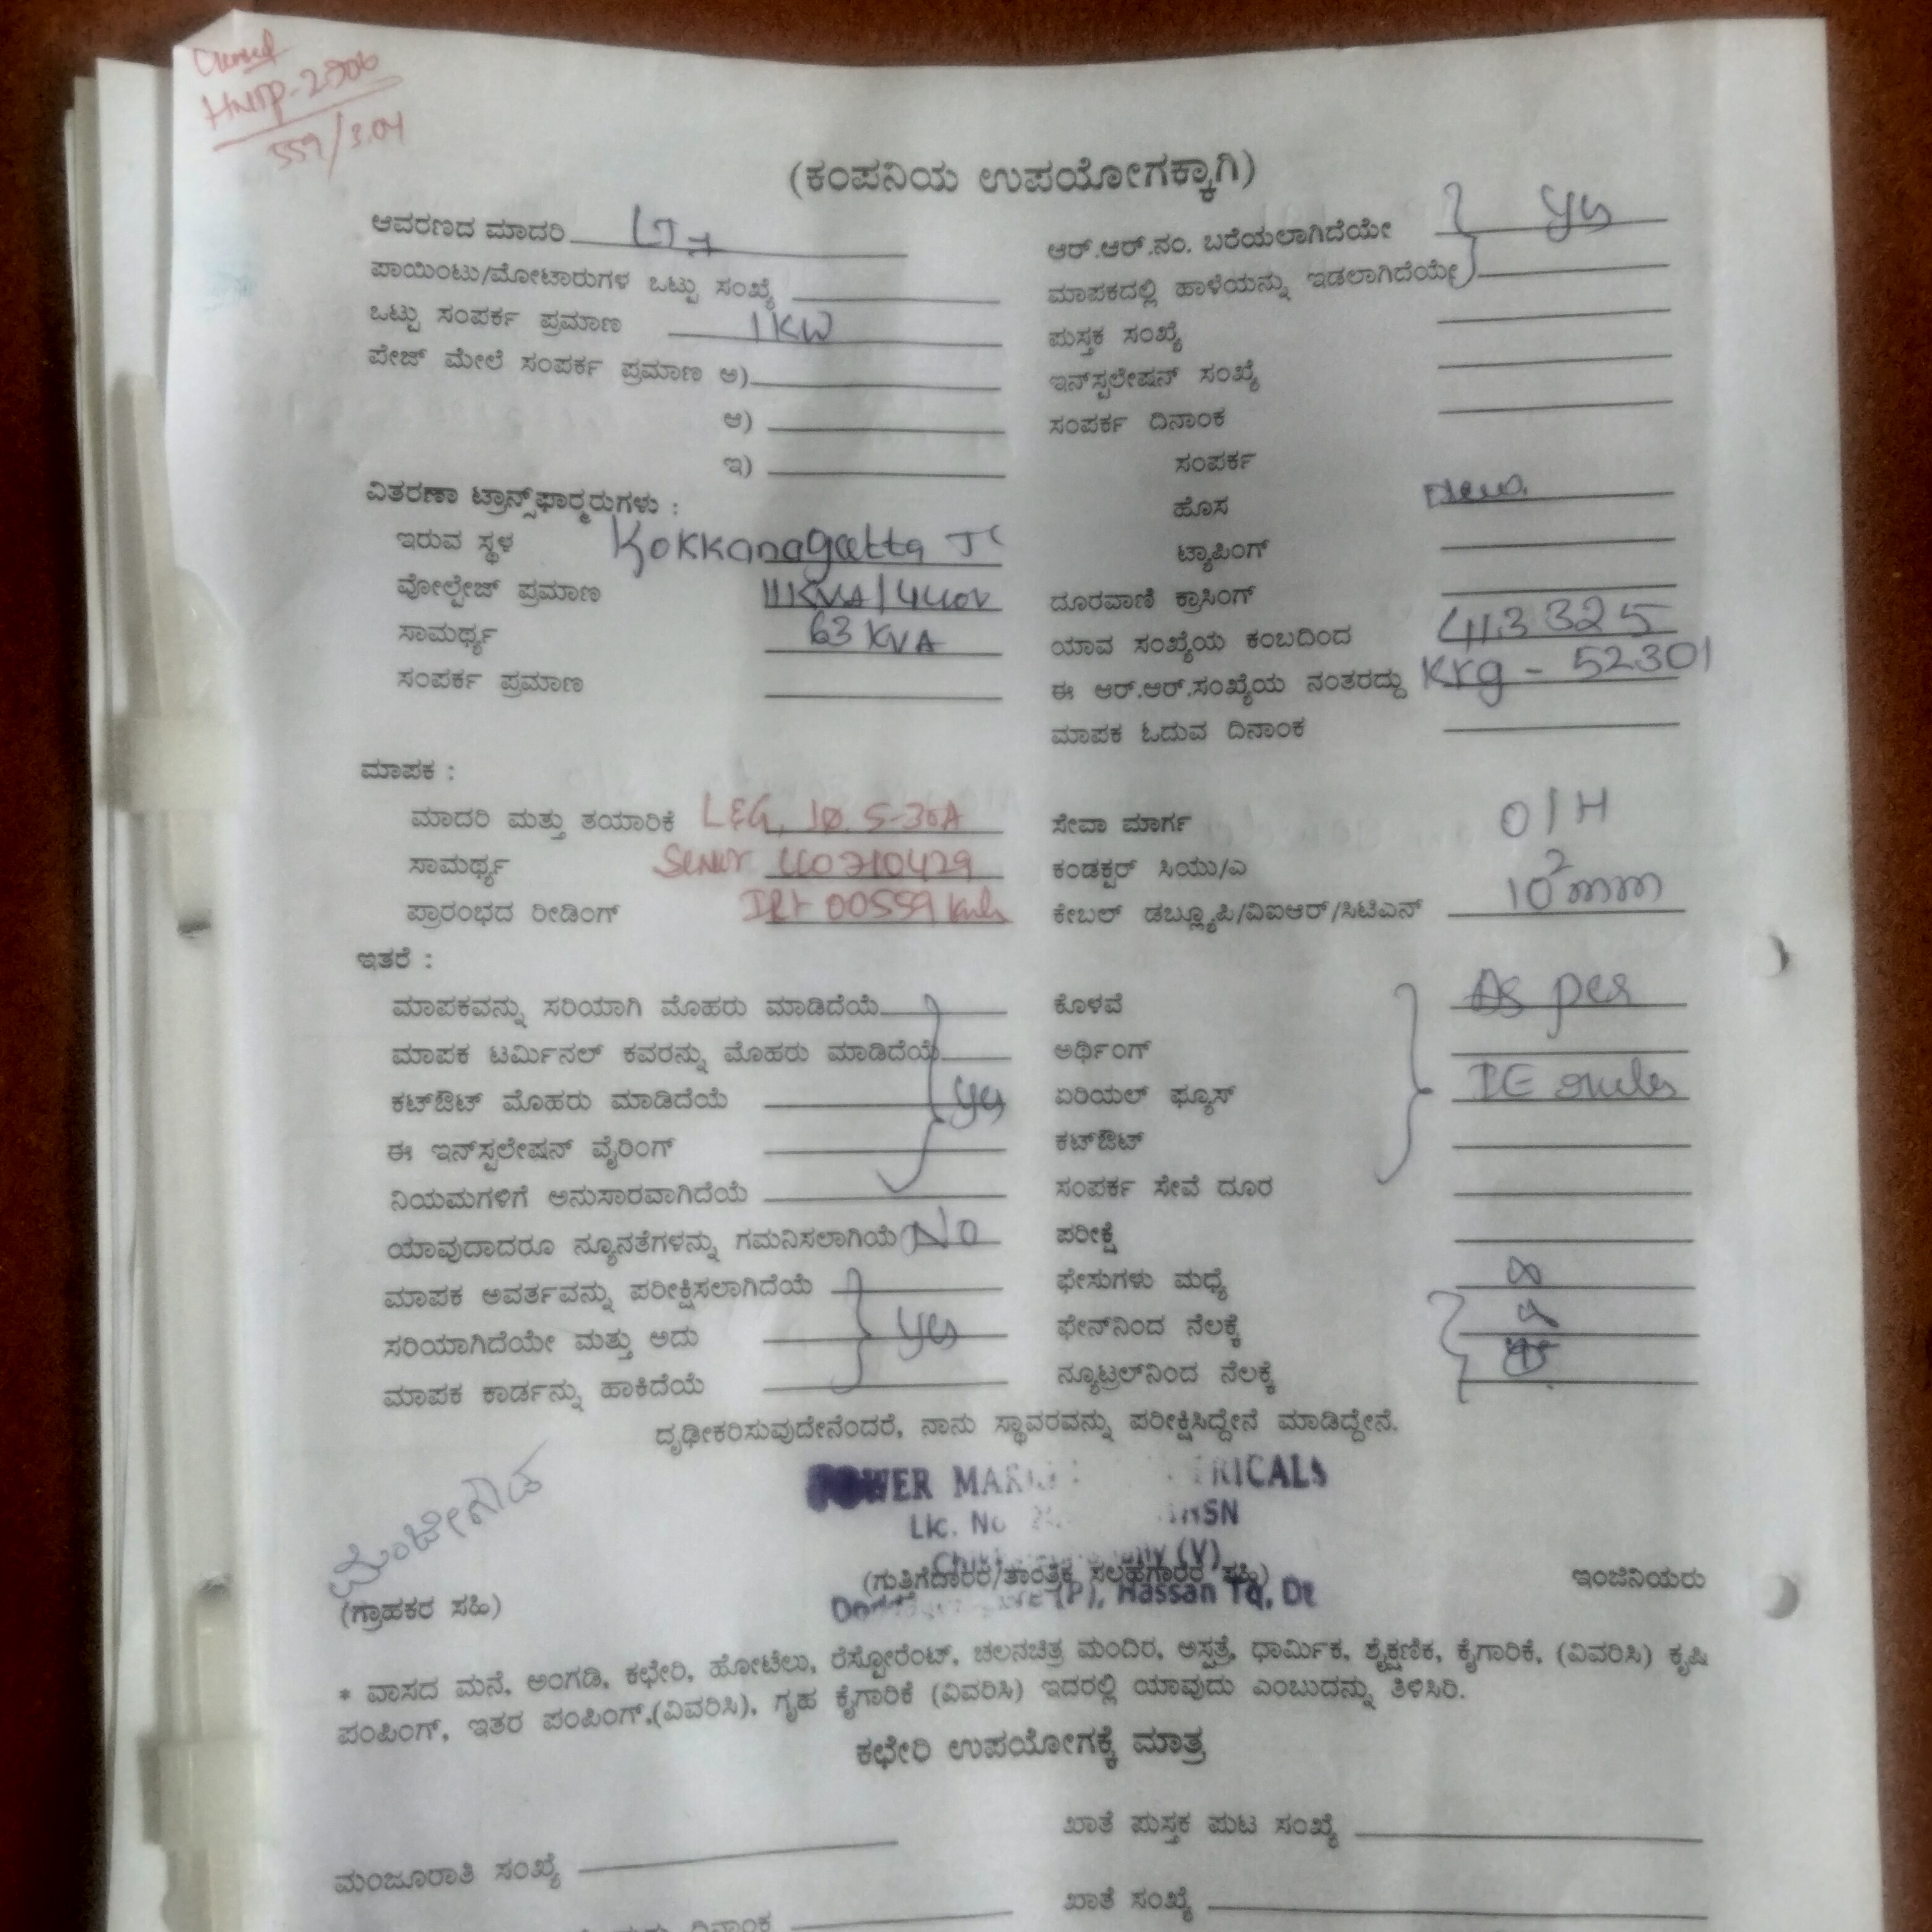 HNTP-2706
559/3.04
(ಕಂಪನಿಯ ಉಪಯೋಗಕ್ಕಾಗಿ)
ಆವರಣದ ಮಾದರಿ LT
ಪಾಯಿಂಟು/ಮೋಟಾರುಗಳ ಒಟ್ಟು ಸಂಖ್ಯೆ
ಒಟ್ಟು ಸಂಪರ್ಕ ಪ್ರಮಾಣ 1KW
ಪೇಜ್ ಮೇಲೆ ಸಂಪರ್ಕ ಪ್ರಮಾಣ ಅ)
ಆ)
ಇ)
ವಿತರಣಾ ಟ್ರಾನ್ಸ್‌ಫಾರ್‍ಮರುಗಳು :
ಇರುವ ಸ್ಥಳ Kokkanagatta TC
ವೋಲ್ಟೇಜ್ ಪ್ರಮಾಣ 11KVA/440V
ಸಾಮರ್ಥ್ಯ 63 KVA
ಸಂಪರ್ಕ ಪ್ರಮಾಣ
ಆರ್.ಆರ್.ನಂ. ಬರೆಯಲಾಗಿದೆಯೇ yes
ಮಾಪಕದಲ್ಲಿ ಹಾಳೆಯನ್ನು ಇಡಲಾಗಿದೆಯೇ
ಪುಸ್ತಕ ಸಂಖ್ಯೆ
ಇನ್‌ಸ್ಪಲೇಷನ್ ಸಂಖ್ಯೆ
ಸಂಪರ್ಕ ದಿನಾಂಕ
ಸಂಪರ್ಕ
ಹೊಸ New
ಟ್ಯಾಪಿಂಗ್
ದೂರವಾಣಿ ಕ್ರಾಸಿಂಗ್
ಯಾವ ಸಂಖ್ಯೆಯ ಕಂಬದಿಂದ 413325
ಈ ಆರ್.ಆರ್.ಸಂಖ್ಯೆಯ ನಂತರದ್ದು Krg - 52301
ಮಾಪಕ ಓದುವ ದಿನಾಂಕ
ಮಾಪಕ :
ಮಾದರಿ ಮತ್ತು ತಯಾರಿಕೆ L&G, 1Ø 5-30A
ಸಾಮರ್ಥ್ಯ
ಪ್ರಾರಂಭದ ರೀಡಿಂಗ್ 00559 kwh
ಸೇವಾ ಮಾರ್ಗ O/H
ಕಂಡಕ್ಟರ್ ಸಿಯು/ಎ
ಕೇಬಲ್ ಡಬ್ಲ್ಯೂಪಿ/ವಿಐಆರ್/ಸಿಟಿಎನ್ 10²mm
ಇತರೆ :
ಮಾಪಕವನ್ನು ಸರಿಯಾಗಿ ಮೊಹರು ಮಾಡಿದೆಯೆ
ಮಾಪಕ ಟರ್ಮಿನಲ್ ಕವರನ್ನು ಮೊಹರು ಮಾಡಿದೆಯೆ
ಕಟ್‌ಔಟ್ ಮೊಹರು ಮಾಡಿದೆಯೆ yes
ಈ ಇನ್‌ಸ್ಪಲೇಷನ್ ವೈರಿಂಗ್
ನಿಯಮಗಳಿಗೆ ಅನುಸಾರವಾಗಿದೆಯೆ
ಯಾವುದಾದರೂ ನ್ಯೂನತೆಗಳನ್ನು ಗಮನಿಸಲಾಗಿಯೆ No
ಮಾಪಕ ಅವರ್ತವನ್ನು ಪರೀಕ್ಷಿಸಲಾಗಿದೆಯೆ
ಸರಿಯಾಗಿದೆಯೇ ಮತ್ತು ಅದು yes
ಮಾಪಕ ಕಾರ್ಡನ್ನು ಹಾಕಿದೆಯೆ
ಕೊಳವೆ As per
ಅರ್ಥಿಂಗ್
ಏರಿಯಲ್ ಫ್ಯೂಸ್ IE rules
ಕಟ್‌ಔಟ್
ಸಂಪರ್ಕ ಸೇವೆ ದೂರ
ಪರೀಕ್ಷೆ
ಫೇಸುಗಳು ಮಧ್ಯೆ
ಫೇನ್‌ನಿಂದ ನೆಲಕ್ಕೆ
ನ್ಯೂಟ್ರಲ್‌ನಿಂದ ನೆಲಕ್ಕೆ
ದೃಢೀಕರಿಸುವುದೇನೆಂದರೆ, ನಾನು ಸ್ಥಾವರವನ್ನು ಪರೀಕ್ಷಿಸಿದ್ದೇನೆ ಮಾಡಿದ್ದೇನೆ.
POWER
Lic. No
(V)
(P), Hassan Tq, Dt
ಮಂಜೇಗೌಡ
(ಗ್ರಾಹಕರ ಸಹಿ)
(ಗುತ್ತಿಗೆದಾರರ/ತಾಂತ್ರಿಕ ಸಲಹಗಾರರ ಸಹಿ)
ಇಂಜಿನಿಯರು
* ವಾಸದ ಮನೆ, ಅಂಗಡಿ, ಕಛೇರಿ, ಹೋಟೆಲು, ರೆಸ್ಟೋರೆಂಟ್, ಚಲನಚಿತ್ರ ಮಂದಿರ, ಅಸ್ಪತ್ರೆ, ಧಾರ್ಮಿಕ, ಶೈಕ್ಷಣಿಕ, ಕೈಗಾರಿಕೆ, (ವಿವರಿಸಿ) ಕೃಷಿ
ಪಂಪಿಂಗ್, ಇತರ ಪಂಪಿಂಗ್,(ವಿವರಿಸಿ), ಗೃಹ ಕೈಗಾರಿಕೆ (ವಿವರಿಸಿ) ಇದರಲ್ಲಿ ಯಾವುದು ಎಂಬುದನ್ನು ತಿಳಿಸಿರಿ.
ಕಛೇರಿ ಉಪಯೋಗಕ್ಕೆ ಮಾತ್ರ
ಖಾತೆ ಪುಸ್ತಕ ಪುಟ ಸಂಖ್ಯೆ
ಮಂಜೂರಾತಿ ಸಂಖ್ಯೆ
ಖಾತೆ ಸಂಖ್ಯೆ
ದಿನಾಂಕ